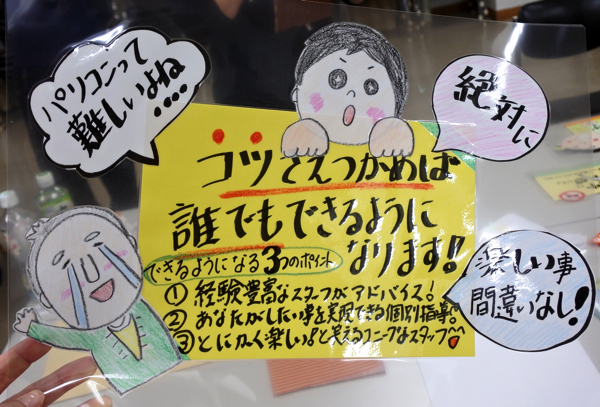 パソコンって
難しいよね
‥‥
絶対に
コツさえつかめば
誰でもできるように
なります!
できるようになる3つのポイント
① 経験豊富なスタッフがアドバイス!
② あなたがしたい事を実現できる個別指導♡
③ とにかく楽しい♪と笑えるユニークなスタッフ♡
楽しい事
間違いなし!